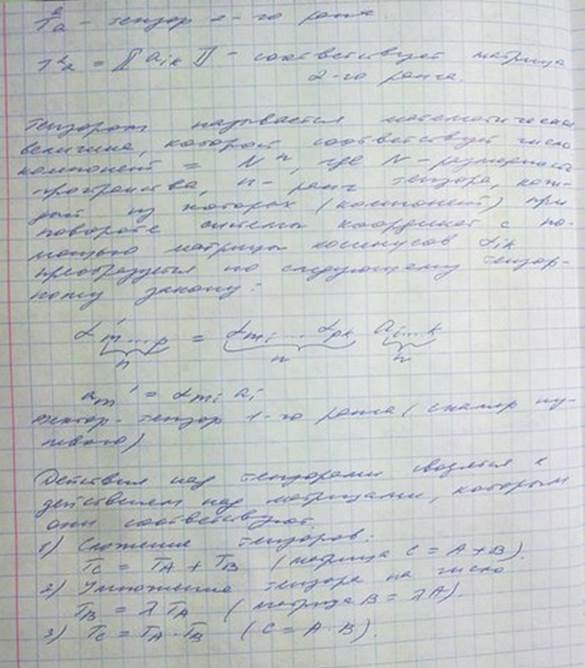 T²a – тензор 2-го ранга
T²a = [[ aik ]] – соответствует матрица
2-го ранга.
Тензором называется математическая
величина, которой соответствует число
компонент = Nⁿ, где N – размерность
пространства, n – ранг тензора, каж-
дая из которых (компонент) при
повороте системы координат с по-
мощью матрицы косинусов αik
преобразуется по следующему тензор-
ному закону:
α'm...p = αmi...αpk ai...k
n n n
am' = αmi ai
вектор-тензор 1-го ранга (скаляр ну-
левого)
Действия над тензорами сводятся к
действиям над матрицами, которым
они соответствуют.
1) Сложение тензоров:
TC = TA + TB (матрица C = A + B).
2) Умножение тензора на число
TB = λ TA (матрица B = λA).
3) TC = TA · TB (C = A · B).